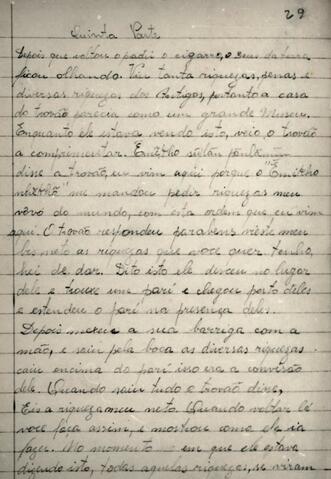 29
Quinta Parte
Depois que soltou o padú e cigarro, o Deus da terra
ficou olhando. Viu tanta riquezas, penas e
diversas riquezas dos Antigos, portanto a casa
do trovão parecia como um grande Museu.
Enquanto ele estava vendo isto, veio, o trovão
a comprimentar. Ẽmẽkho
disse a trovão, eu vim aqui porque o "Ẽmẽkho
me mandou pedir riquezas meu
vovô do mundo, com esta ordem que eu vim
aqui. O trovão respondeu parabens vieste meu
bisneto as riquezas que você quer tenho,
hei de dar. Dito isto ele desceu no lugar
dele e trouxe um parí e chegou perto deles
e estendeu o parí na presença deles.
Depois mexeu a sua barriga com a
mão, e saiu pela boca as diversas riquezas
caiu encima do parí isso era a conversão
dele. Quando saiu tudo o trovão disse,
Eis a riqueza meu neto. Quando voltar lá
você faça assim, e mostrou como ele ia
fazer. No momento em que ele estava
dizendo isto, todas aquelas riquezas, se viram